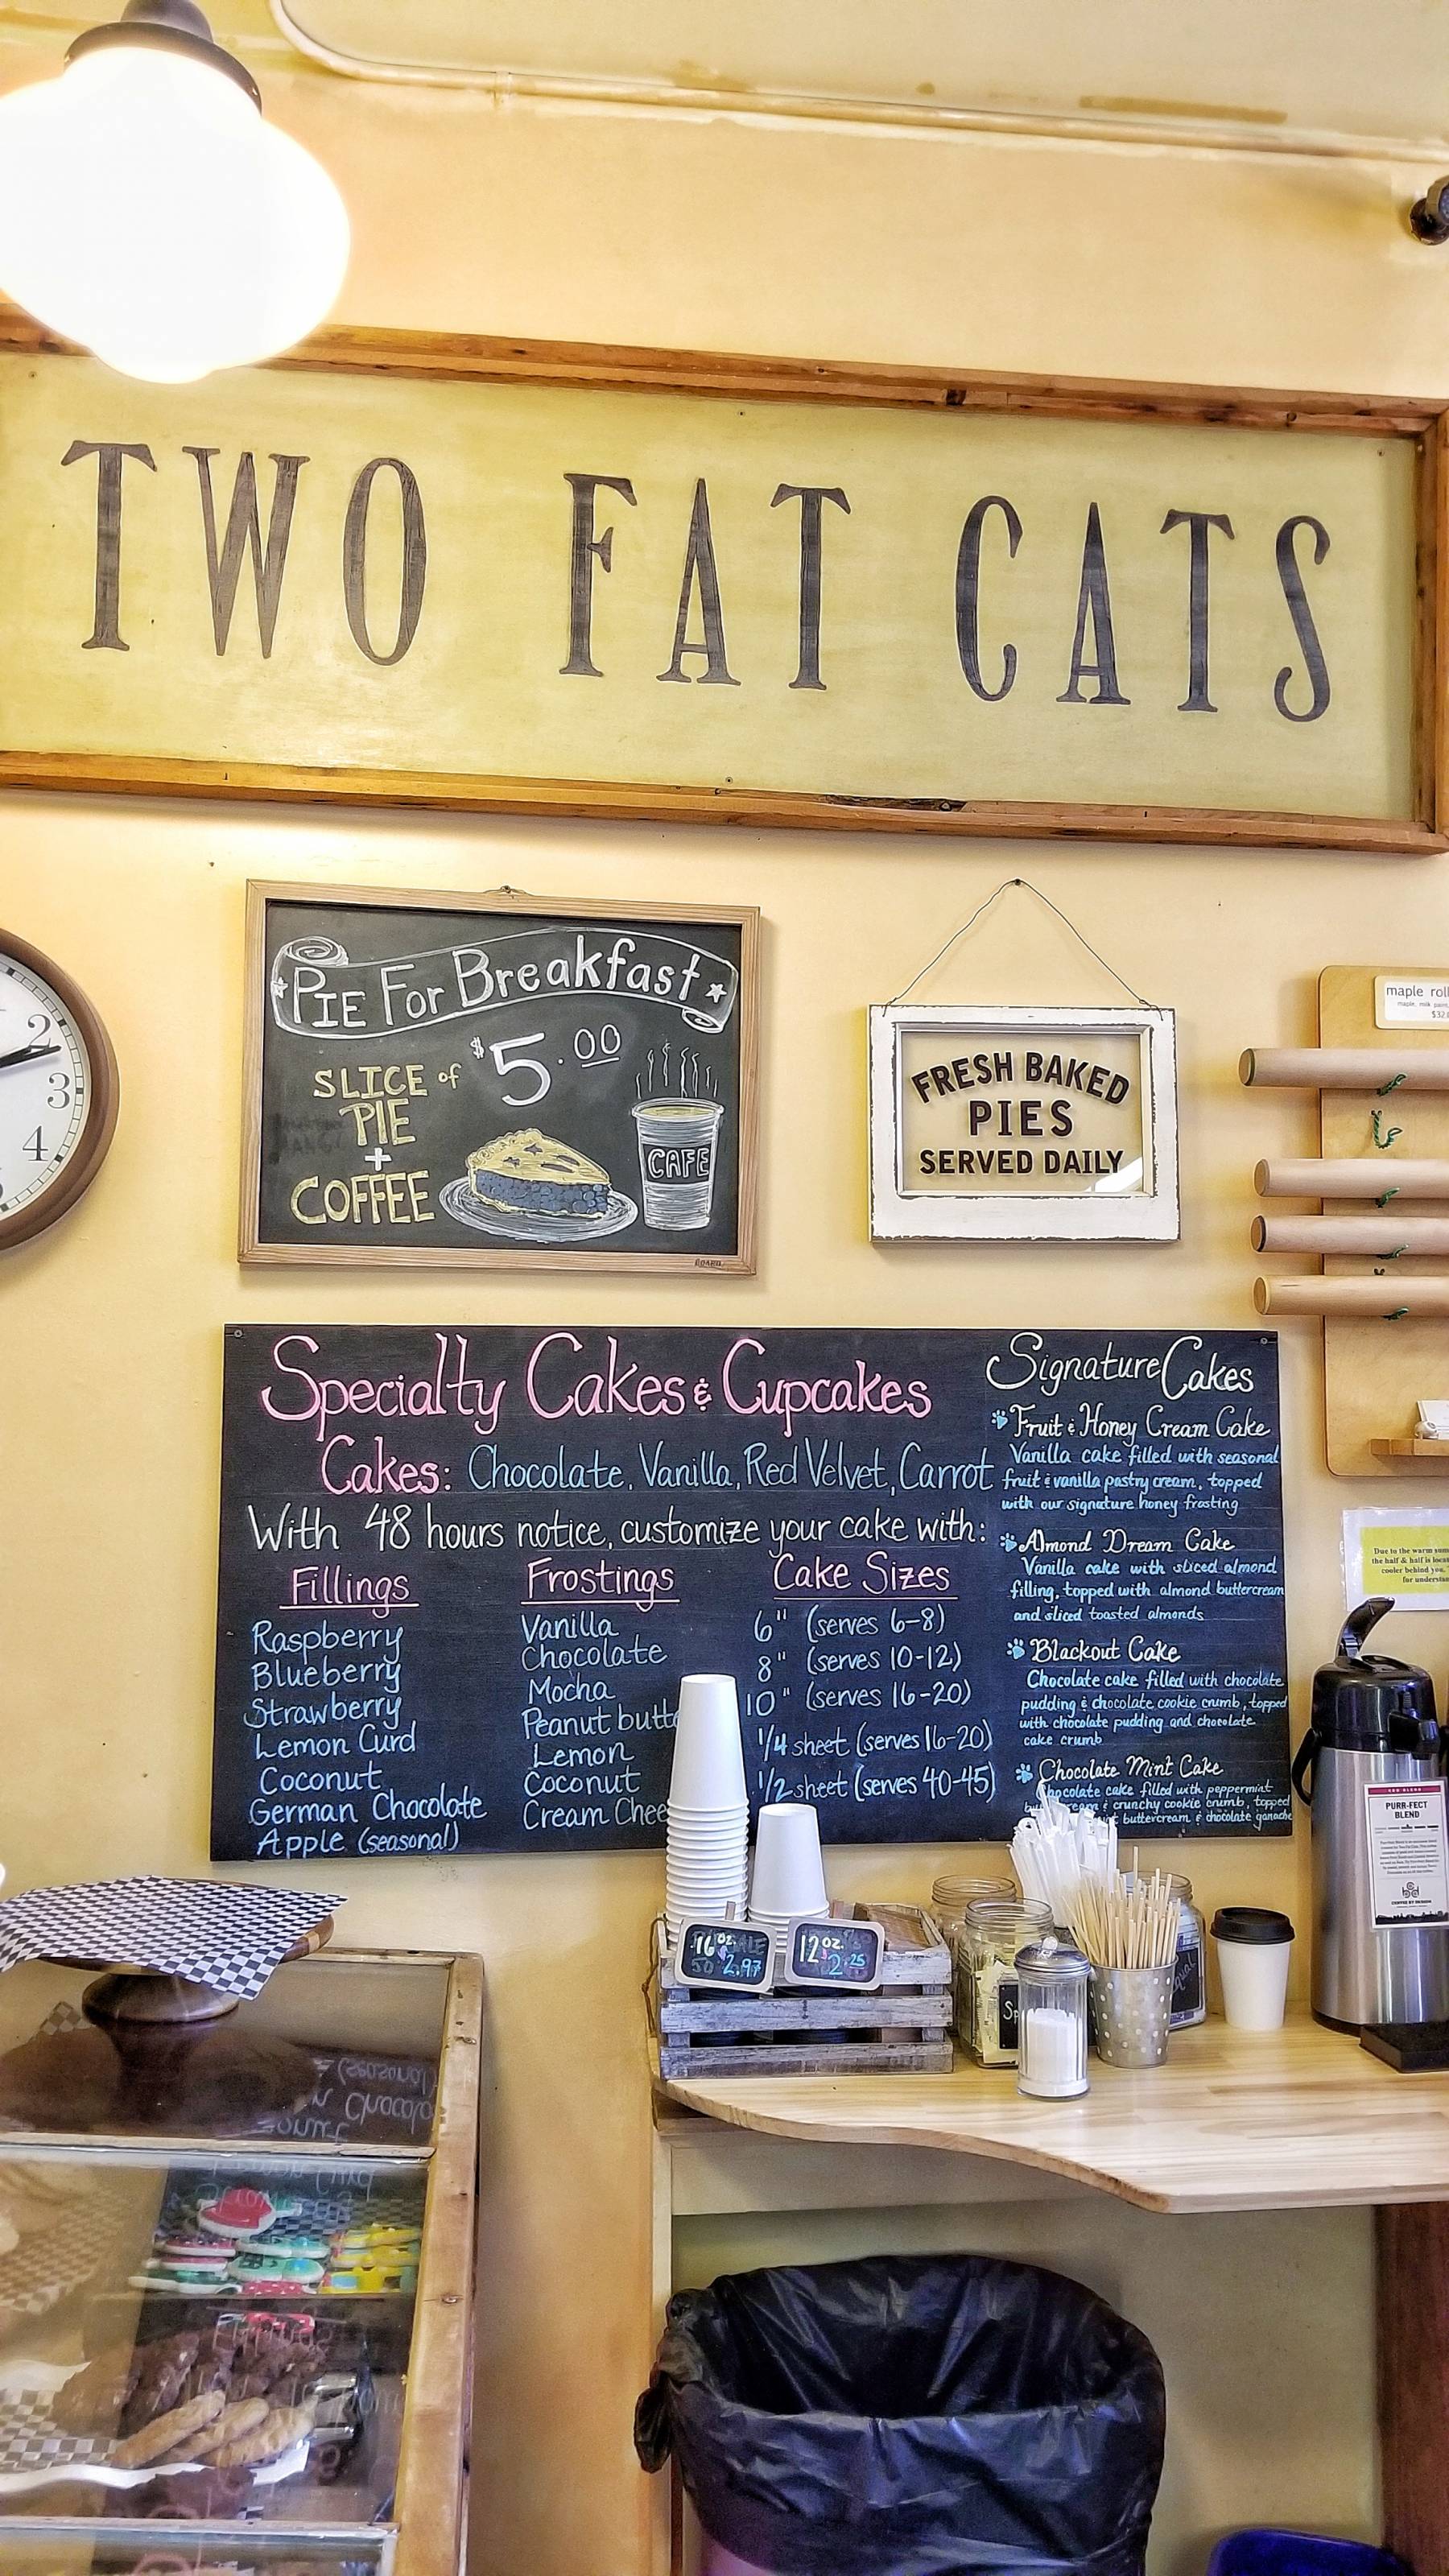 TWO FAT CATS
PIE FOR Breakfast
SLICE of
PIE
+
COFFEE
$5.00
CAFE
FRESH BAKED
PIES
SERVED DAILY
2
3
4
maple roll
$32.
Specialty Cakes & Cupcakes
Cakes: Chocolate, Vanilla, Red Velvet, Carrot
With 48 hours notice, customize your cake with:
Fillings
Raspberry
Blueberry
Strawberry
Lemon Curd
Coconut
German Chocolate
Apple (seasonal)
Frostings
Vanilla
Chocolate
Mocha
Peanut butt
Lemon
Coconut
Cream Chee
Cake Sizes
6" (serves 6-8)
8" (serves 10-12)
10" (serves 16-20)
1/4 sheet (serves 16-20)
1/2 sheet (serves 40-45)
Signature Cakes
Fruit & Honey Cream Cake
Vanilla cake filled with seasonal
fruit & vanilla pastry cream, topped
with our signature honey frosting
Almond Dream Cake
Vanilla cake with sliced almond
filling, topped with almond buttercream
and sliced toasted almonds
Blackout Cake
Chocolate cake filled with chocolate
pudding & chocolate cookie crumb, topped
with chocolate pudding and chocolate
cake crumb
Chocolate Mint Cake
hocolate cake filled with peppermint
ream & crunchy cookie crumb, topped
buttercream & chocolate ganache
Due to the warm
the half & half is
cooler behind you.
for
PURR-FECT
BLEND
COFFEE BY DESIGN
16oz.
2.97
12oz.
2.25
Sp